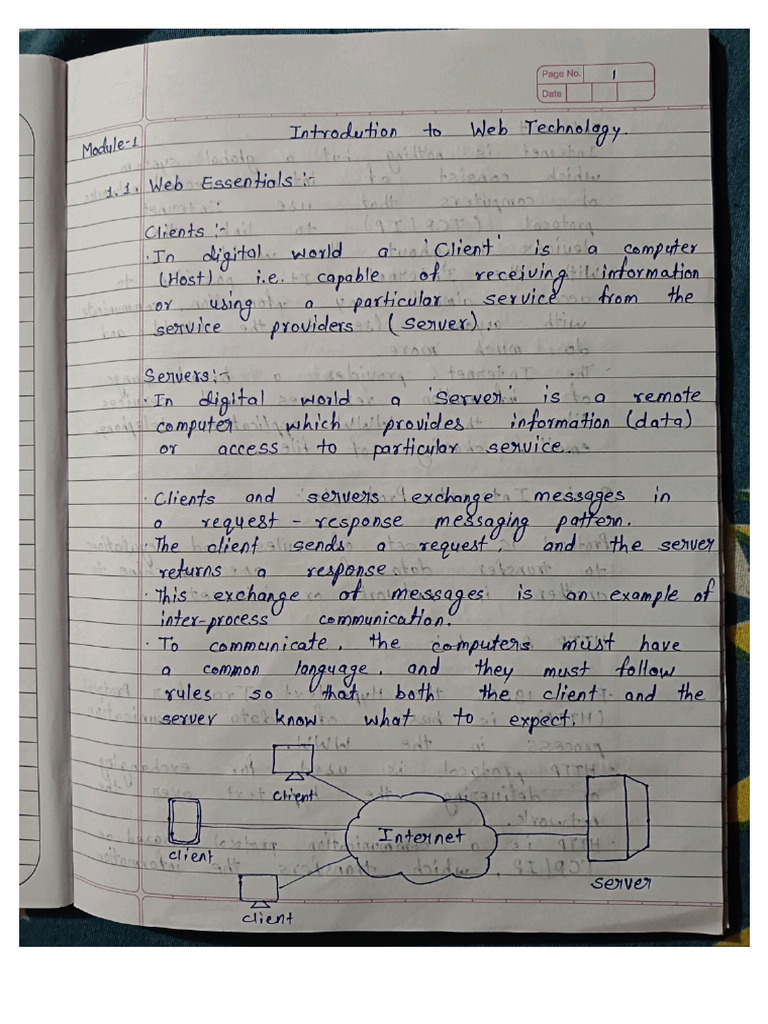 Page No. 1
Date
Module-1
Introdution to Web Technology.
1.1. Web Essentials :-
Clients :-
· In digital world a 'Client' is a computer
(Host) i.e. capable of receiving information
or using a particular service from the
service providers (Server).
Servers :-
· In digital world a 'Server' is a remote
computer which provides information (data)
or access to particular service.
· Clients and servers exchange messages in
a request - response messaging pattern.
· The client sends a request, and the server
returns a response.
· This exchange of messages is an example of
inter-process communication.
· To communicate, the computers must have
a common language, and they must follow
rules so that both the client and the
server know what to expect.
Client
Internet
client
server
client